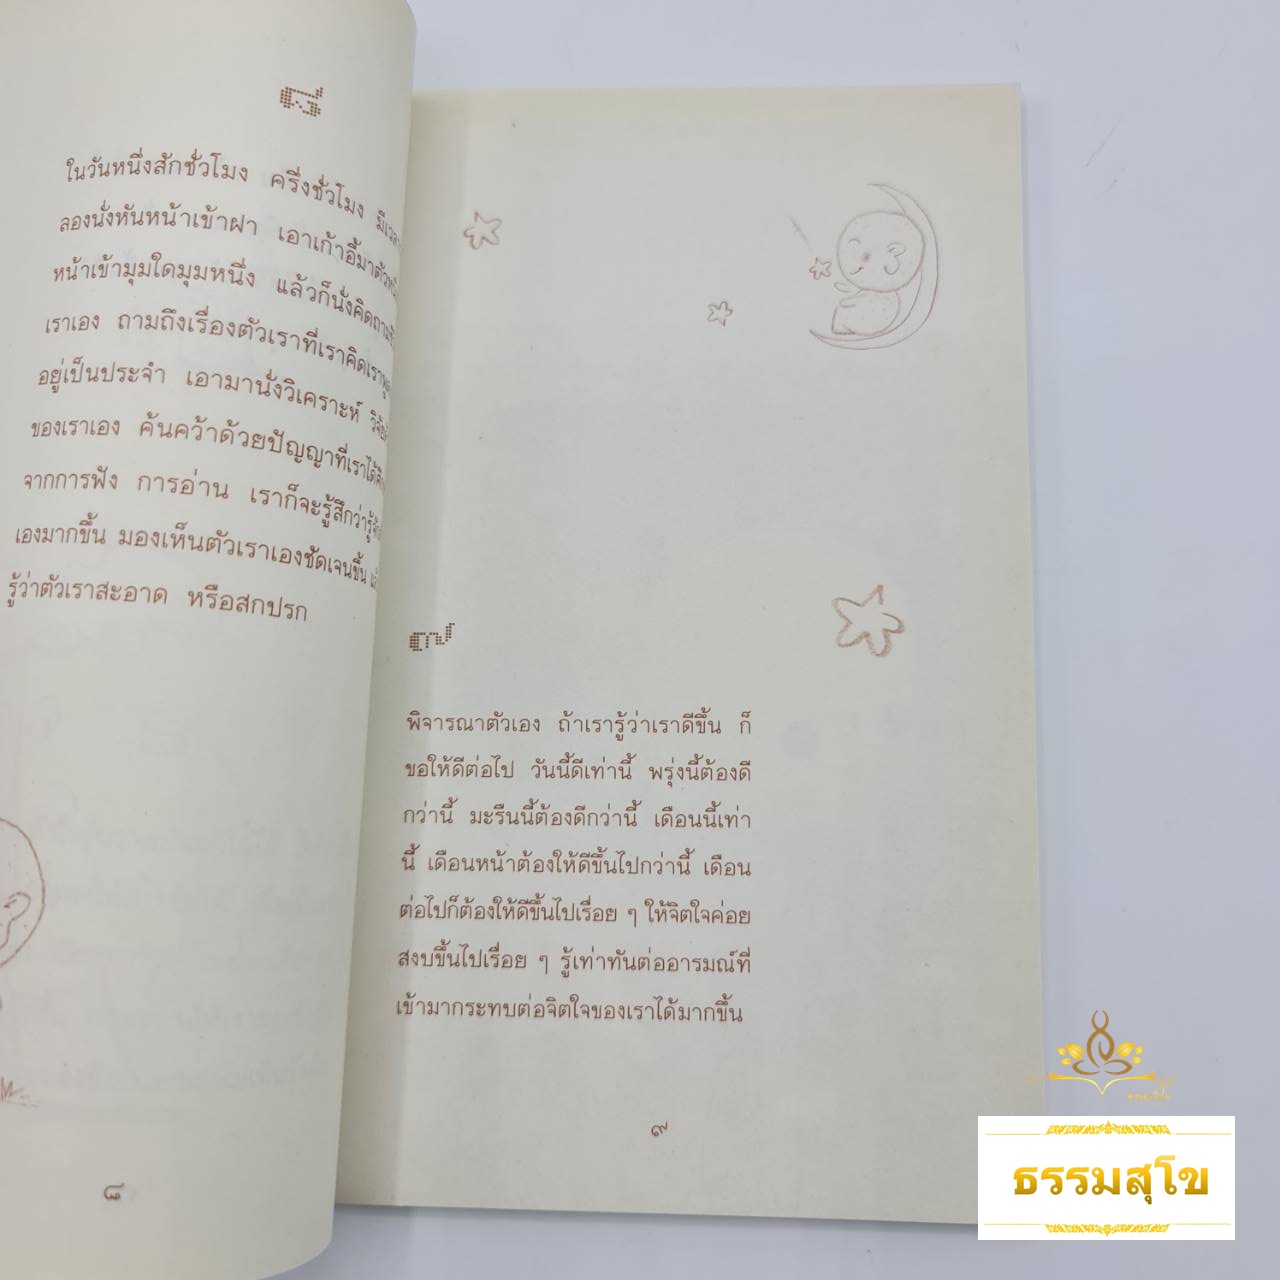 ๖
ในวันหนึ่งสักชั่วโมง ครึ่งชั่วโมง
ลองนั่งหันหน้าเข้าฝา เอาเก้าอี้มาตัวหนึ่ง
หน้าเข้ามุมใดมุมหนึ่ง แล้วก็นั่งคิดถาม
เราเอง ถามถึงเรื่องตัวเราที่เราคิดเราพูด
อยู่เป็นประจำ เอามานั่งวิเคราะห์
ของเราเอง ค้นคว้าด้วยปัญญาที่เราได้
จากการฟัง การอ่าน เราก็จะรู้สึกว่ารู้
เองมากขึ้น มองเห็นตัวเราเองชัดเจนขึ้น
รู้ว่าตัวเราสะอาด หรือสกปรก
๘
๗
พิจารณาตัวเอง ถ้าเรารู้ว่าเราดีขึ้น ก็
ขอให้ดีต่อไป วันนี้ดีเท่านี้ พรุ่งนี้ต้องดี
กว่านี้ มะรืนนี้ต้องดีกว่านี้ เดือนนี้เท่า
นี้ เดือนหน้าต้องให้ดีขึ้นไปกว่านี้ เดือน
ต่อไปก็ต้องให้ดีขึ้นไปเรื่อย ๆ ให้จิตใจค่อย
สงบขึ้นไปเรื่อย ๆ รู้เท่าทันต่ออารมณ์ที่
เข้ามากระทบต่อจิตใจของเราได้มากขึ้น
๙
ธรรมสุโข